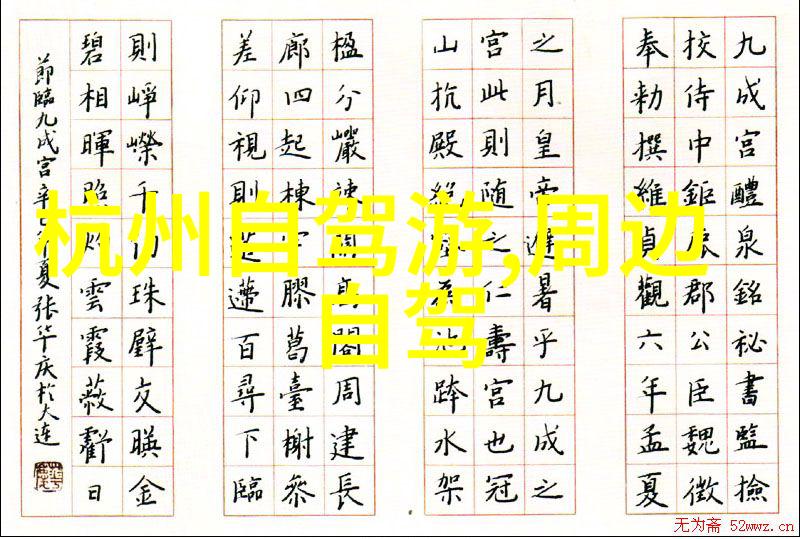 九成宫醴泉銘秘書監撿
挍侍中鉅鹿郡公臣魏徵
奉勑撰維貞觀六年孟夏
之月皇帝避暑乎九成之
宫此則随之仁壽宫也冠
山抗殿絶壑為池跨水架
楹分巖竦闕髙閣周建長
廊四起棟宇膠葛臺榭叅
差仰視則迢遰百尋下臨
則崢嶸千仞珠璧交暎金
碧相暉照灼雲霞蔽虧日
節臨九成宫辛巳年夏张华庆於大连
杭州自驾游,周边
自驾
无为斋 52wwz.cn